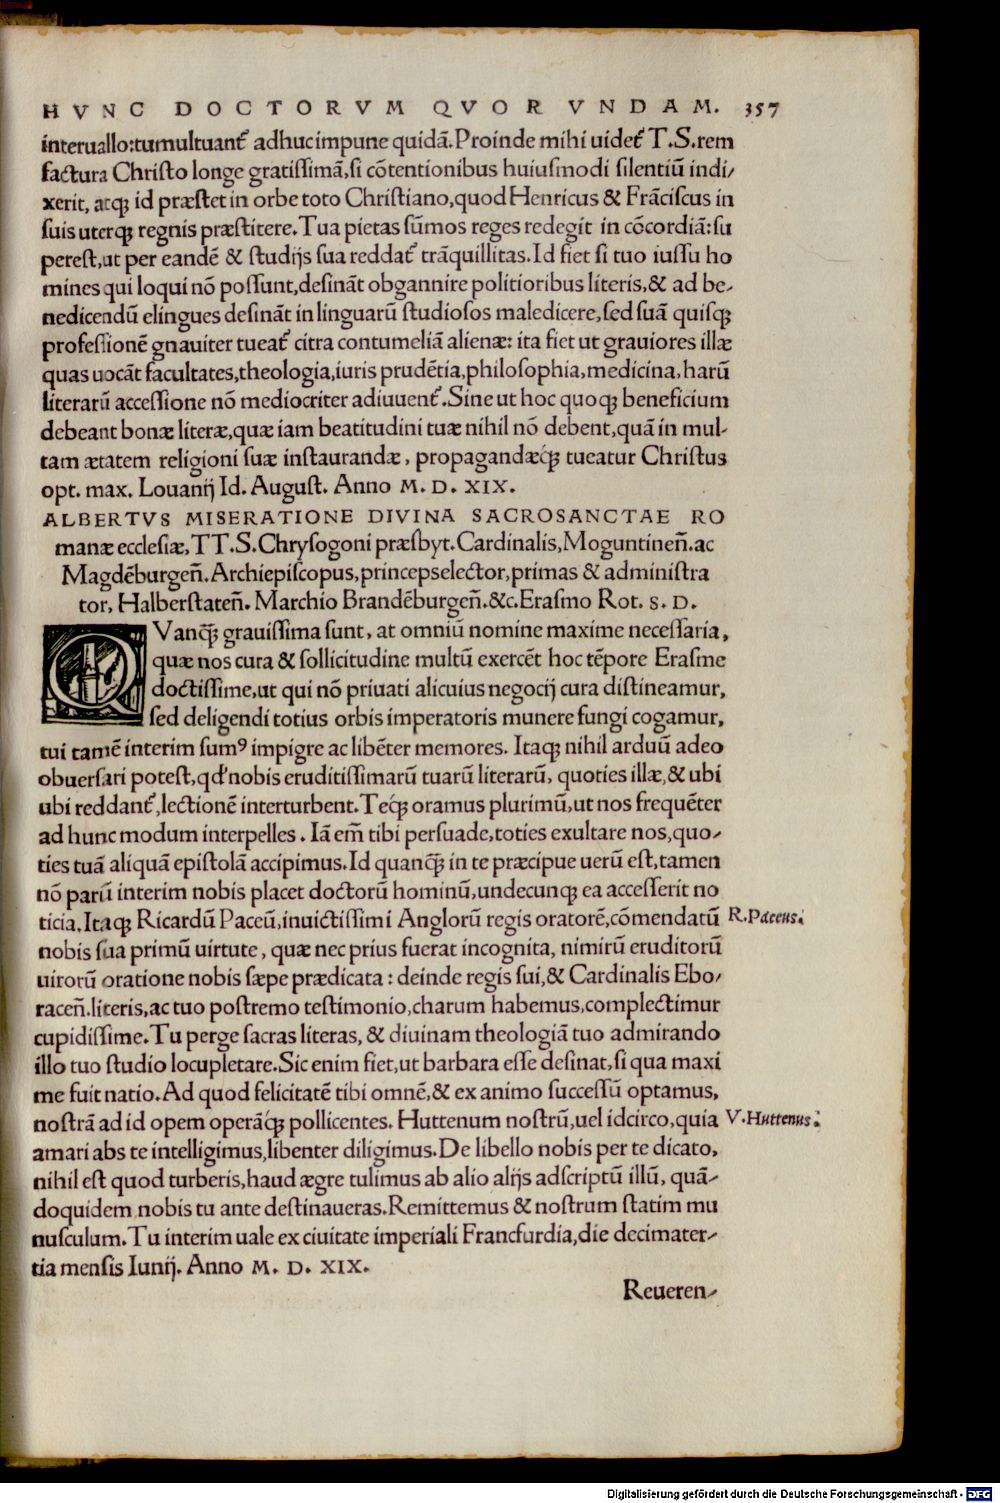 HVNC DOCTORVM QVORVNDAM. 357
interuallo:tumultuant᷑ adhuc impune quidã. Proinde mihi uidet᷑ T.S. rem
factura Christo longe gratissimã, si cõtentionibus huiusmodi silentiũ indi/
xerit, atqꝫ id præstet in orbe toto Christiano, quod Henricus & Frãciscus in
suis uterqꝫ regnis præstitere. Tua pietas sũmos reges redegit in cõcordiã: su
perest, ut per eandẽ & studijs sua reddat᷑ trãquillitas. Id fiet si tuo iussu ho
mines qui loqui nõ possunt, desinãt obgannire politioribus literis, & ad be/
nedicendũ elingues desinãt in linguarũ studiosos maledicere, sed suã quisqꝫ
professionẽ gnauiter tueat᷑ citra contumeliã alienæ: ita fiet ut grauiores illæ
quas uocãt facultates, theologia, iuris prudẽtia, philosophia, medicina, harũ
literarũ accessione nõ mediocriter adiuuent᷑. Sine ut hoc quoqꝫ beneficium
debeant bonæ literæ, quæ iam beatitudini tuæ nihil nõ debent, quã in mul/
tam ætatem religioni suæ instaurandæ, propagandæqꝫ́ tueatur Christus
opt. max. Louanij Id. August. Anno M. D. XIX.
ALBERTVS MISERATIONE DIVINA SACROSANCTAE RO
manæ ecclesiæ, TT.S. Chrysogoni præsbyt. Cardinalis, Moguntineñ. ac
Magdẽburgeñ. Archiepiscopus, princeps elector, primas & administra
tor, Halberstateñ. Marchio Brandẽburgeñ. &c. Erasmo Rot. S. D.
QVanqꝫ̃ grauissima sunt, at omniũ nomine maxime necessaria,
quæ nos cura & sollicitudine multũ exercẽt hoc tẽpore Erasme
doctissime, ut qui nõ priuati alicuius negocij cura distineamur,
sed deligendi totius orbis imperatoris munere fungi cogamur,
tui tamẽ interim sumꝰ impigre ac libẽter memores. Itaqꝫ nihil arduũ adeo
obuersari potest, qđ nobis eruditissimarũ tuarũ literarũ, quoties illæ, & ubi
ubi reddant᷑, lectionẽ interturbent. Teqꝫ́ oramus plurimũ, ut nos frequẽter
ad hunc modum interpelles. Iã em̃ tibi persuade, toties exultare nos, quo/
ties tuã aliquã epistolã accipimus. Id quanqꝫ̃ in te præcipue uerũ est, tamen
nõ parũ interim nobis placet doctorũ hominũ, undecunqꝫ ea accesserit no
ticia. Itaqꝫ Ricardũ Paceũ, inuictissimi Anglorũ regis oratorẽ, cõmendatũ R. Paceus.
nobis sua primũ uirtute, quæ nec prius fuerat incognita, nimirũ eruditorũ
uirorũ oratione nobis sæpe prædicata: deinde regis sui, & Cardinalis Ebo/
raceñ. literis, ac tuo postremo testimonio, charum habemus, complectimur
cupidissime. Tu perge sacras literas, & diuinam theologiã tuo admirando
illo tuo studio locupletare. Sic enim fiet, ut barbara esse desinat, si qua maxi
me fuit natio. Ad quod felicitatẽ tibi omnẽ, & ex animo successũ optamus,
nostrã ad id opem operãqꝫ́ pollicentes. Huttenum nostrũ, uel idcirco, quia V. Huttenus.
amari abs te intelligimus, libenter diligimus. De libello nobis per te dicato,
nihil est quod turberis, haud ægre tulimus ab alio alijs adscriptũ illũ, quã/
doquidem nobis tu ante destinaueras. Remittemus & nostrum statim mu
nusculum. Tu interim uale ex ciuitate imperiali Francfurdia, die decimater/
tia mensis Iunij. Anno M. D. XIX.
Reueren/
Digitalisierung gefördert durch die Deutsche Forschungsgemeinschaft - DFG